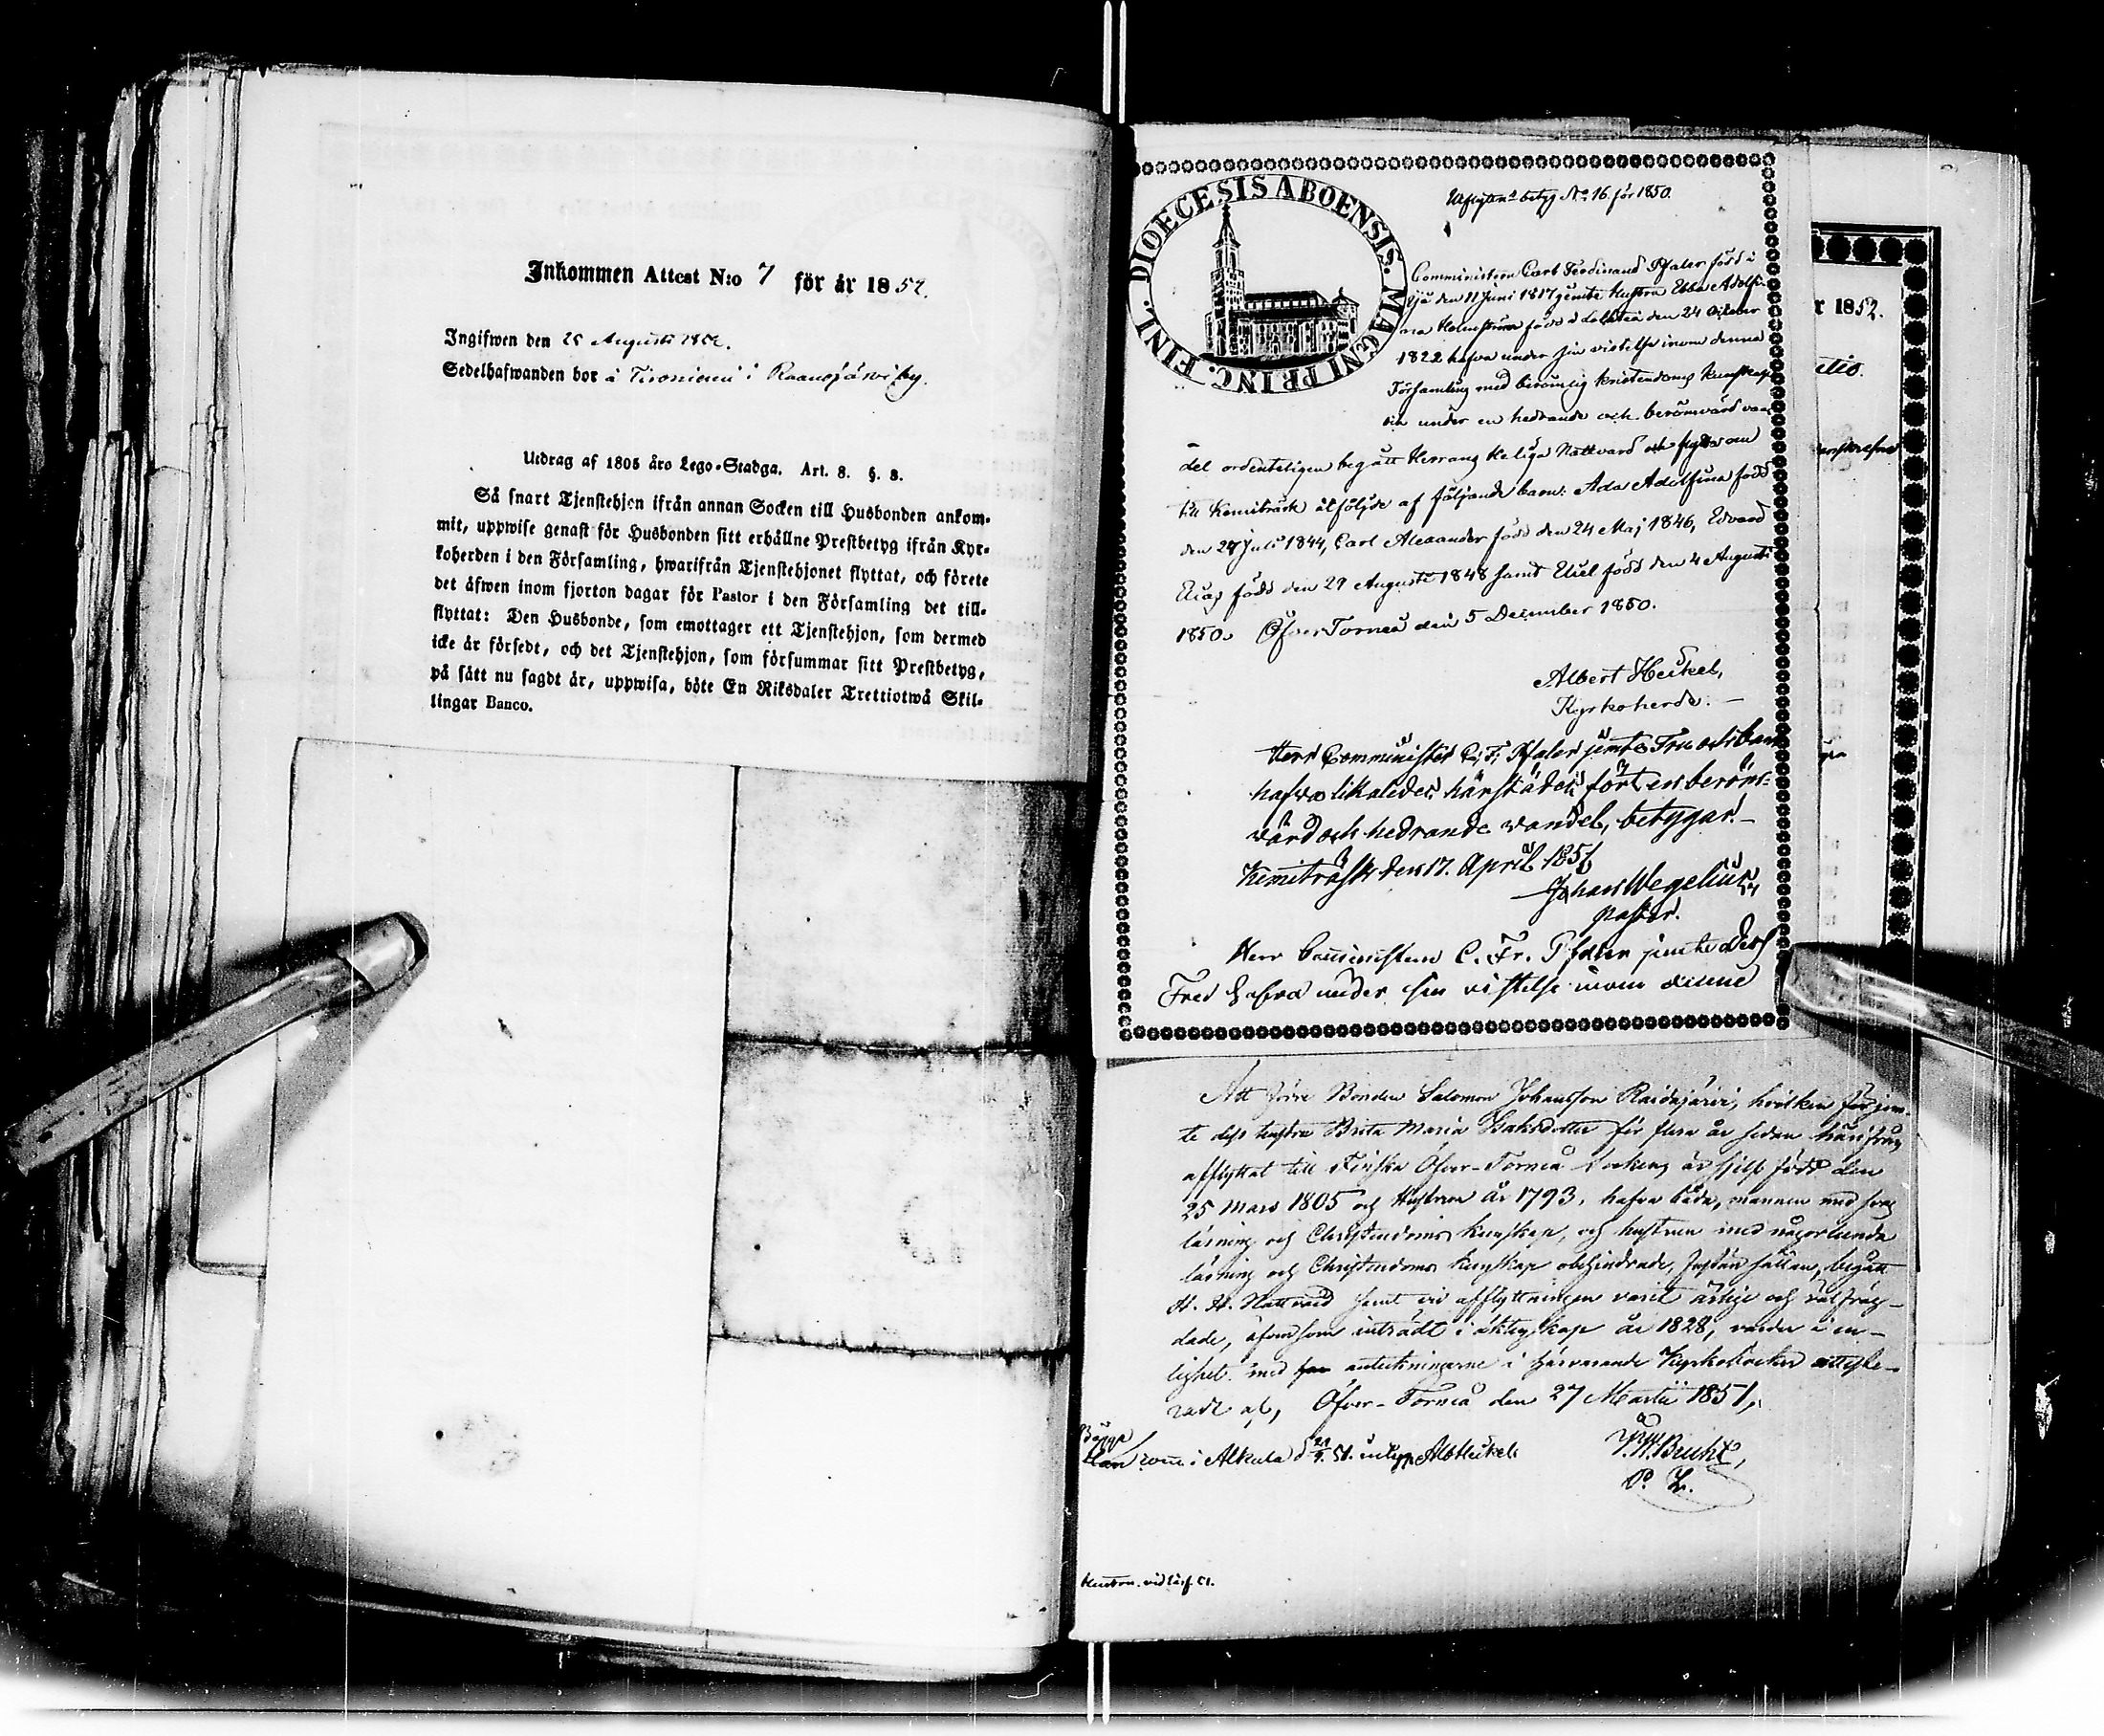 Inkommen Attest N:o 7 för år 1852.
Ingifwen den 25 Augusti 1852.
Sedelhafwanden bor å Tironiemi i Raanojärvi by.
Utdrag af 1805 års Lego-Stadga. Art. 8. §. 8.
Så snart Tjenstehjon ifrån annan Socken till Husbonden ankom-
mit, uppwise genast för Husbonden sitt erhållne Prestbetyg ifrån Kyr-
koherden i den Församling, hwarifrån Tjenstehjonet flyttat, och förete
det äfwen inom fjorton dagar för Pastor i den Församling det till-
flyttat: Den Husbonde, som emottager ett Tjenstehjon, som dermed
icke är försedt, och det Tjenstehjon, som försummar sitt Prestbetyg,
på sätt nu sagdt är, uppwisa, böte En Riksdaler Trettiotwå Skil-
lingar Banco.
DIOECESIS ABOENSIS. MAGNI PRINC. FINL.
betyg No 16 för 1850.
Ministern Carl Ferdinand Pfaler född i
den 11 Juni 1817 jemte Hustru Ebba Adolfi-
na född i den 24 October
1822 hafva under sin vistelse inom denna
Församling med berömlig kristendoms kunskap
och under en hedrande och berömvärd van-
del ordenteligen begått Herrans Heliga Nattvard och flytta nu
till Kemiträsk åtföljde af följande barn: Ada Adolfina född
den 24 Juli 1844, Carl Alexander född den 24 Maj 1846, Edvard
Elias född den 29 Augusti 1848 samt Eliel född den 4 Augusti
1850. Öfver Torneå den 5 December 1850.
Albert Heikel,
Kyrkoherde.
Herr Comminister C. F. Pfaler jemte Fru och barn
hafva likaledes härstädes fört en beröm-
värd och hedrande vandel, betygar.
Kemiträsk den 17. April 1851
Johan Wegelius
pastor.
Herr Comministern C. Fr. Pfaler jemte Dess
Fru hafva under sin vistelse inom denne
Att förre Bonden Salomon Johansson Raidajärvi, hvilken för jem-
te dess hustru Brita Maria Isaksdotter för flera år sedan härifrån
afflyttat till Finska Öfver-Torneå Socken, är sjelf född den
25 Mars 1805 och Hustrun år 1793, hafva båda, mannen med svag
läsning och Christendoms kunskap, och hustrun med någorlunda
läsning och Christendoms kunskap obehindrade, fastän sällan, begått
H. H. Nattvard samt vid afflyttningen varit ärlige och välfräj-
dade, äfvensom inträdt i äktenskap år 1828, varder i en-
lighet med anteckningarne i härvarande Kyrkoböcker atteste-
radt af, Öfver-Torneå den 27 Martii 1851,
i Alkula Alb Heikel.
Bruhn,
P. L.
r 1852.